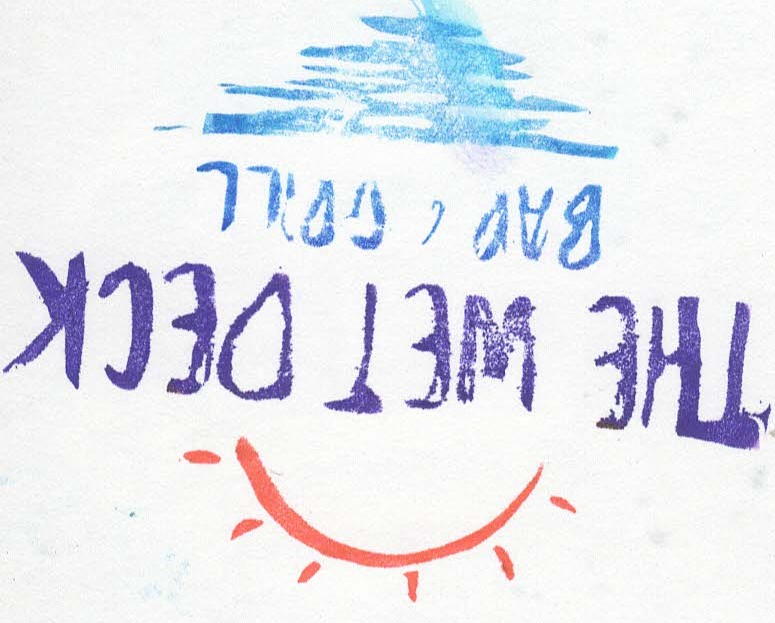 THE WET DECK
BAR & GRILL